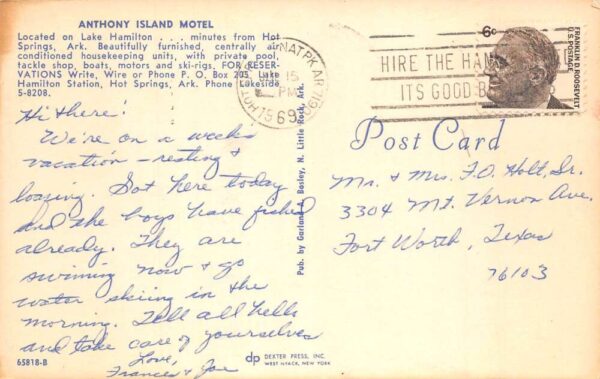 ANTHONY ISLAND MOTEL
Located on Lake Hamilton . . . minutes from Hot
Springs, Ark. Beautifully furnished, centrally air
conditioned housekeeping units, with private pool,
tackle shop, boats, motors and ski-rigs. FOR RESER-
VATIONS Write, Wire or Phone P. O. Box 205, Lake
Hamilton Station, Hot Springs, Ark. Phone Lakeside
5-8208.
Hi there!
We're on a weeks
vacation - resting &
loafing. Got here today
and the boys have fished
already. They are
swiming now & go
water skiing in the
morning. Tell all hello
and take care of yourselves
Love,
Frances & Joe
65818-B
Pub. by Garland L. Bosley, N. Little Rock, Ark.
dp DEXTER PRESS, INC.
WEST NYACK, NEW YORK
NAT PK AR
15
PM
69
HIRE THE HAN
ITS GOOD B
6¢
FRANKLIN D. ROOSEVELT
U.S. POSTAGE
Post Card
Mr. & Mrs. F.O. Holt, Sr.
3304 Mt. Vernon Ave.
Fort Worth, Texas
76103